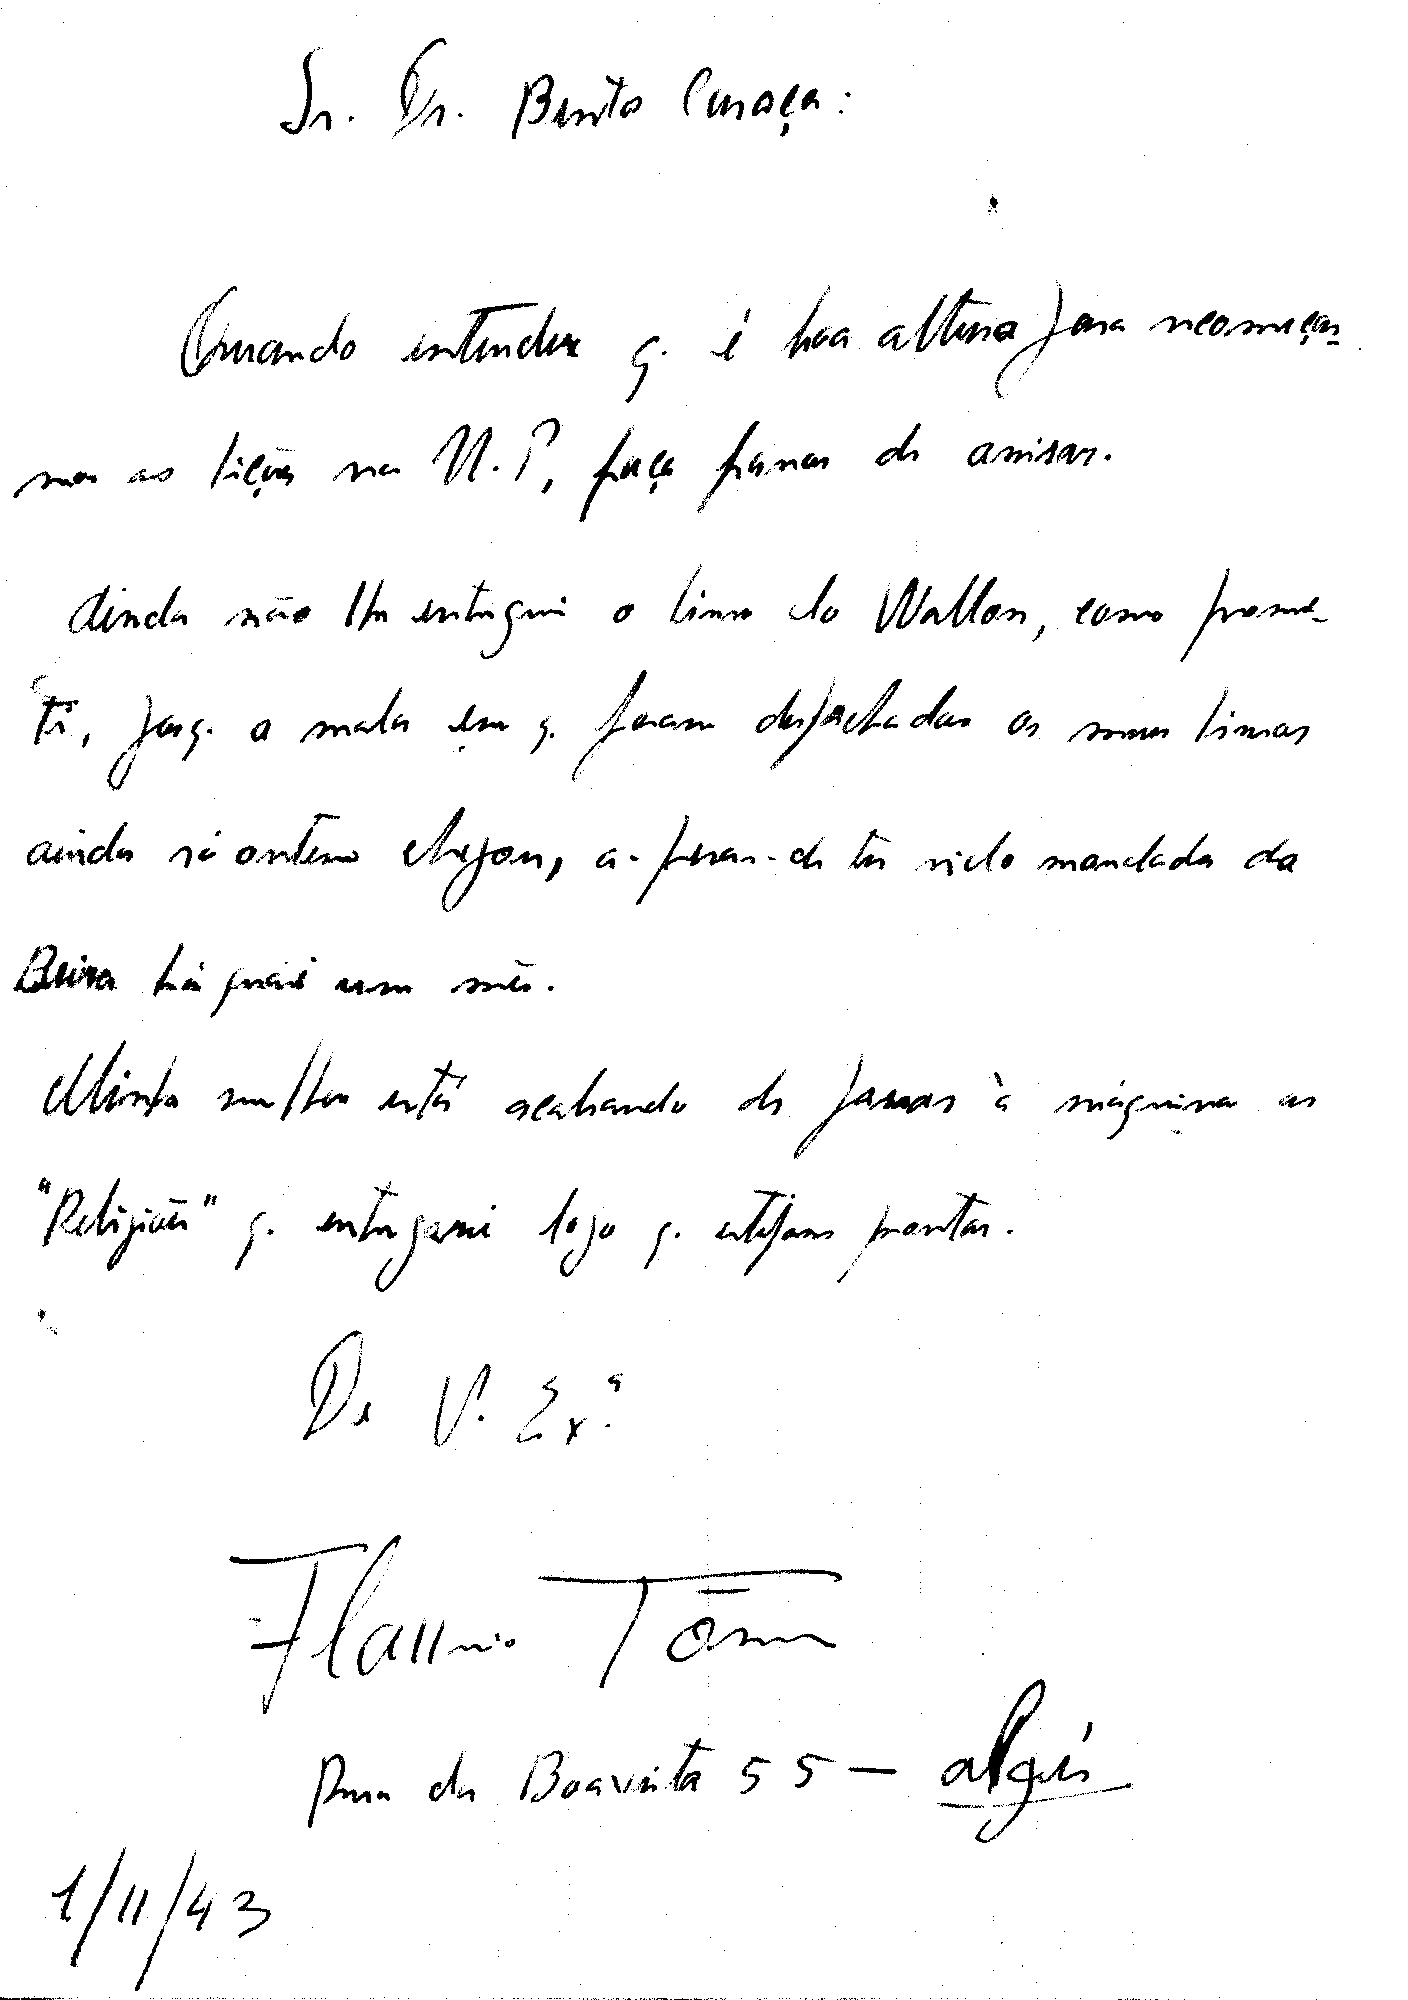 Sr. Dr. Bento Caraça:
Quando entender q. é boa altura para recomeçar-
mos as lições na U.P., faça favor de avisar.
Ainda não lhe entreguei o livro do Wallon, como prome-
ti, porq. a mala em q. foram despachados os meus livros
ainda só ontem chegou, a-pesar-de ter sido mandada da
Beira há quasi um mês.
Minha mulher está acabando de passar à máquina as
"Religiões" q. entregarei logo q. estejam prontas.
De V. Ex.ª
Flausino Torres
Rua da Boavista 55 — Algés
1/11/43